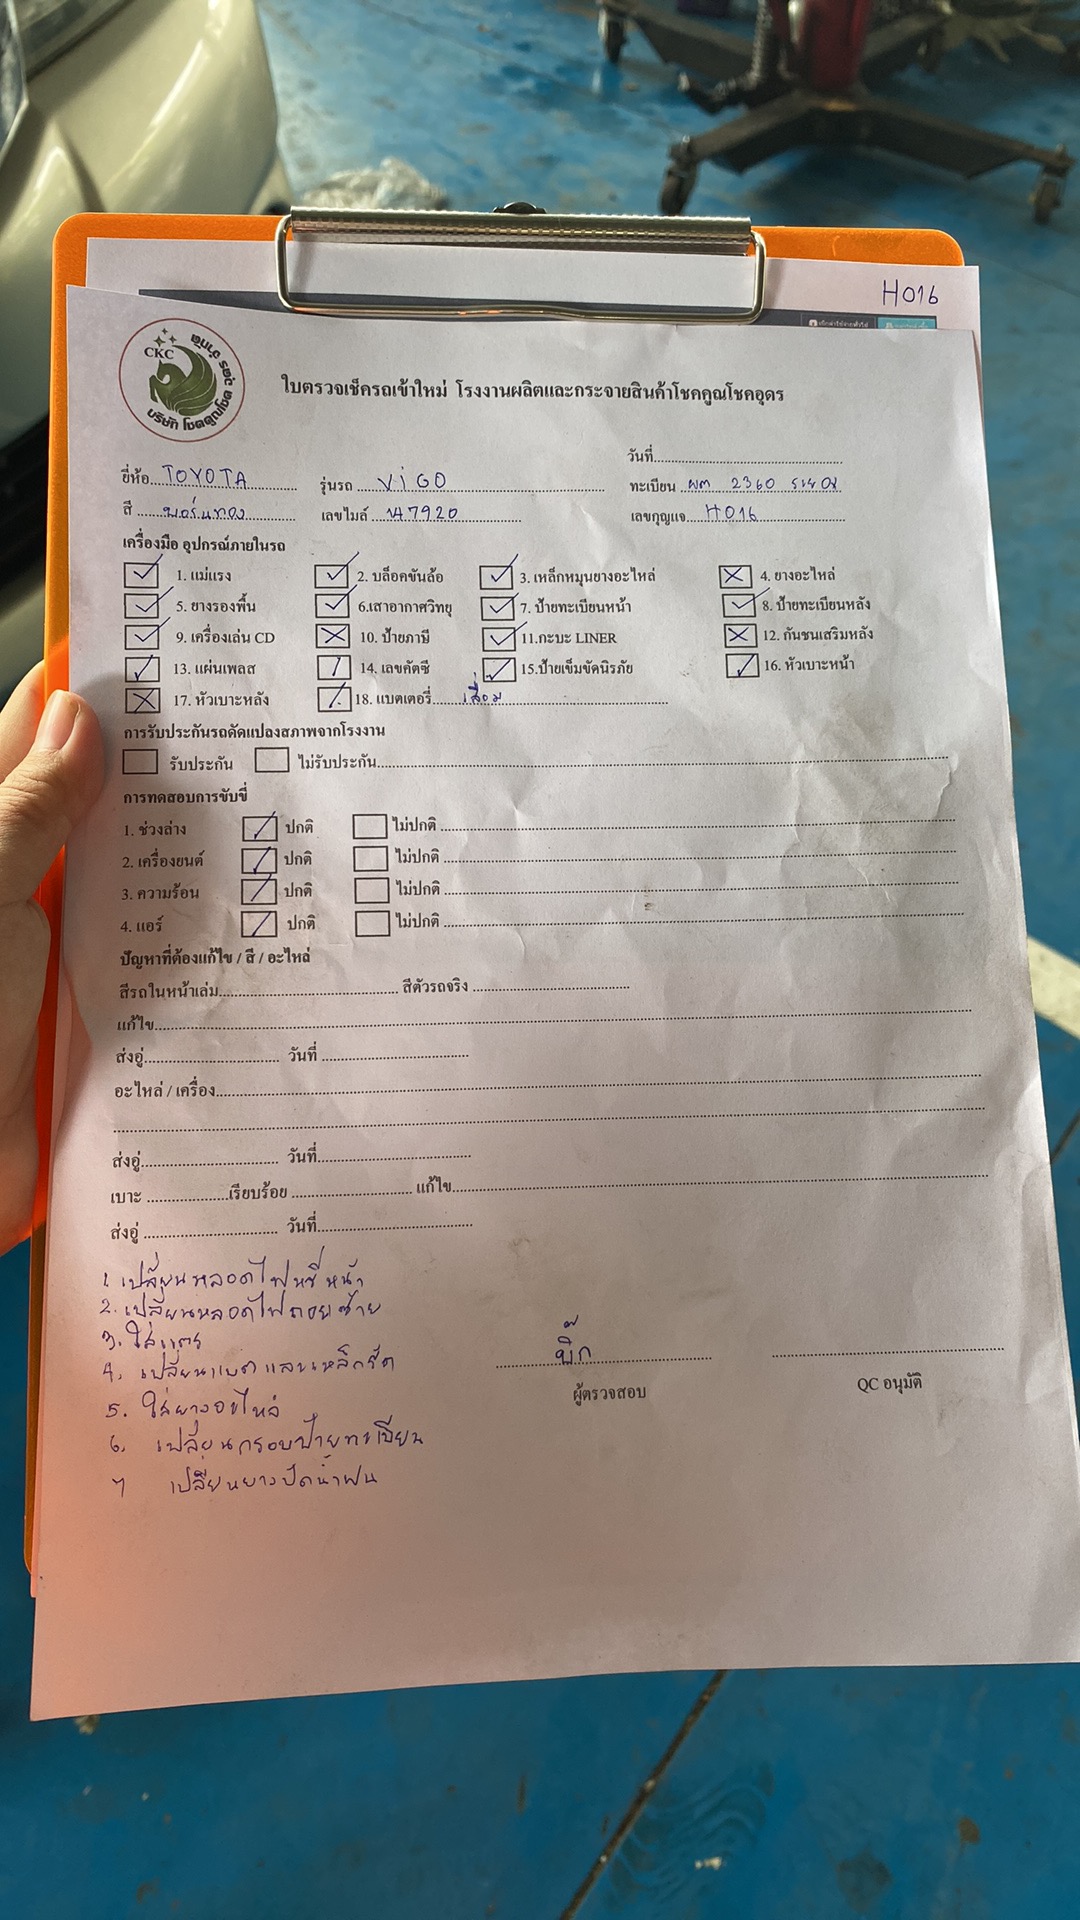 H016
CKC
บริษัท โชคคูณโชค อุดร จำกัด
ใบตรวจเช็ครถเข้าใหม่ โรงงานผลิตและกระจายสินค้าโชคคูณโชคอุดร
วันที่
ยี่ห้อ TOYOTA รุ่นรถ ViGO ทะเบียน ผต 2360 ระยอง
สี บอร์นทอง เลขไมล์ 147920 เลขกุญแจ H016
เครื่องมือ อุปกรณ์ภายในรถ
1. แม่แรง 2. บล็อคขันล้อ 3. เหล็กหมุนยางอะไหล่ 4. ยางอะไหล่
5. ยางรองพื้น 6.เสาอากาศวิทยุ 7. ป้ายทะเบียนหน้า 8. ป้ายทะเบียนหลัง
9. เครื่องเล่น CD 10. ป้ายภาษี 11.กะบะ LINER 12. กันชนเสริมหลัง
13. แผ่นเพลส 14. เลขคัตซี 15.ป้ายเข็มขัดนิรภัย 16. หัวเบาะหน้า
17. หัวเบาะหลัง 18. แบตเตอรี่ เสื่อม
การรับประกันรถดัดแปลงสภาพจากโรงงาน
รับประกัน ไม่รับประกัน
การทดสอบการขับขี่
1. ช่วงล่าง ปกติ ไม่ปกติ
2. เครื่องยนต์ ปกติ ไม่ปกติ
3. ความร้อน ปกติ ไม่ปกติ
4. แอร์ ปกติ ไม่ปกติ
ปัญหาที่ต้องแก้ไข / สี / อะไหล่
สีรถในหน้าเล่ม สีตัวรถจริง
แก้ไข
ส่งอู่ วันที่
อะไหล่ / เครื่อง
ส่งอู่ วันที่
เบาะ เรียบร้อย แก้ไข
ส่งอู่ วันที่
1. เปลี่ยนหลอดไฟหรี่หน้า
2. เปลี่ยนหลอดไฟถอยซ้าย
3. ใส่แตร
4. เปลี่ยนแบตและเหล็กรัด
5. ใส่ยางอะไหล่
6. เปลี่ยนกรอบป้ายทะเบียน
7 เปลี่ยนยางปัดน้ำฝน
บิ๊ก
ผู้ตรวจสอบ QC อนุมัติ